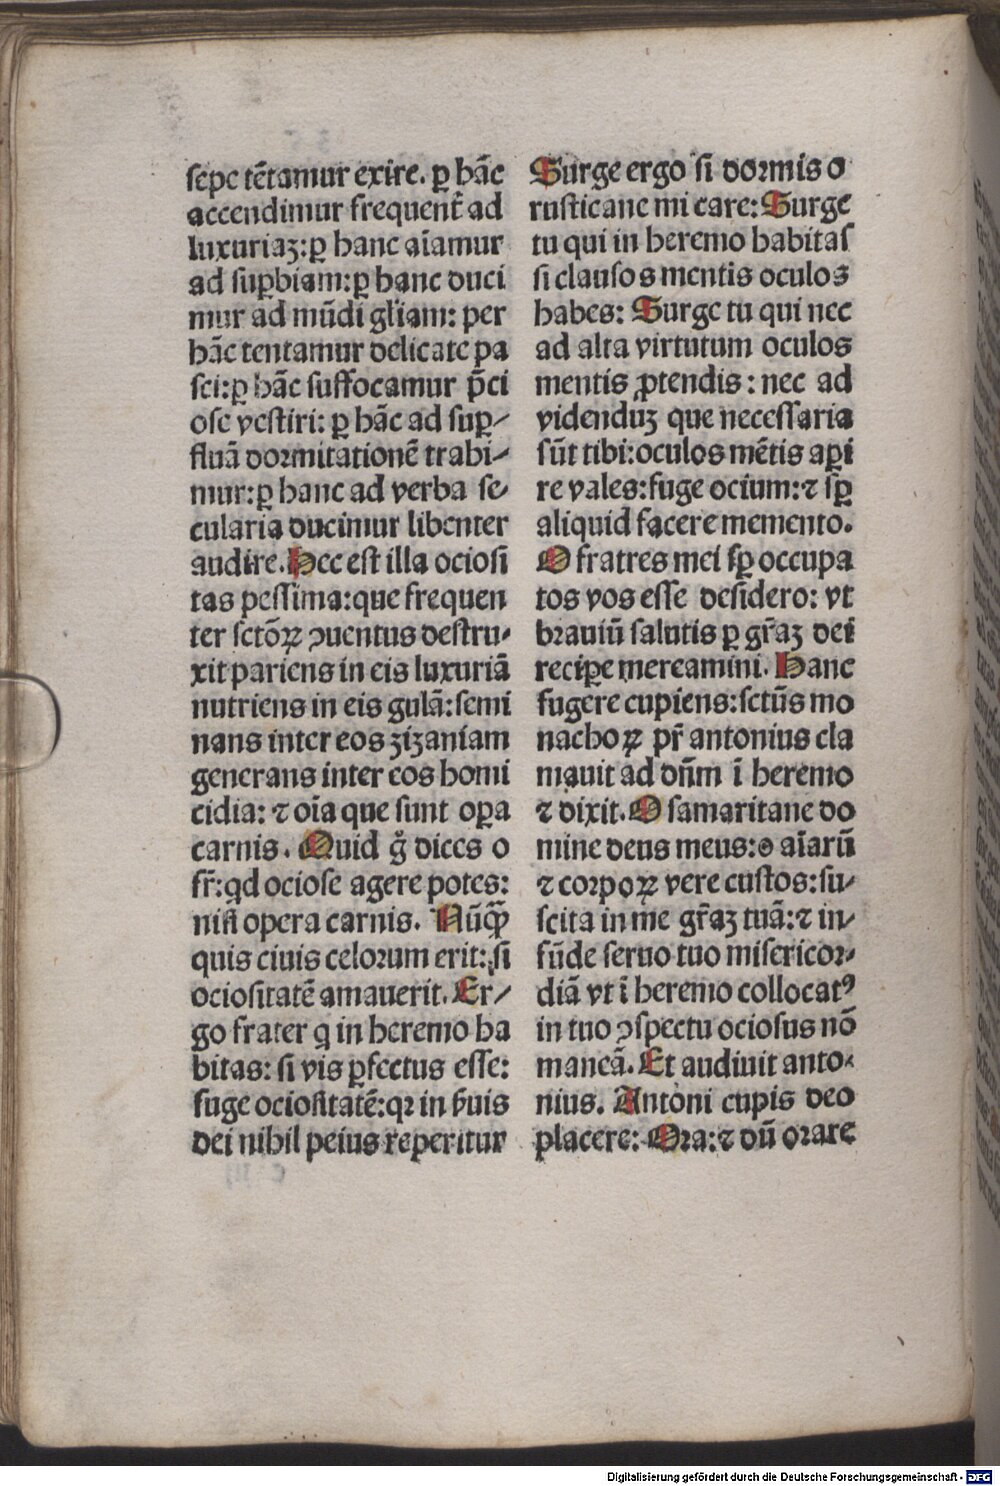 sepe tētamur exire. ꝑ hāc
accendimur frequent̄ ad
luxuriaꝫ:ꝑ hanc aīamur
ad suꝑbiam:ꝑ hanc duci
mur ad mūdi gl̄iam: per
hāc tentamur delicate pa
sci:ꝑ hāc suffocamur p̄ci
ose vestiri: ꝑ hāc ad suꝑ⸗
fluā dormitationē trahi⸗
mur:ꝑ hanc ad verba se⸗
cularia ducimur libenter
audire. Hec est illa ociosi
tas pessima:que frequen
ter sctōꝝ ꝯuentus destru⸗
xit pariens in eis luxuriā
nutriens in eis gulā:semi
nans inter eos zizaniam
generans inter eos homi
cidia: ⁊ oīa que sunt oꝑa
carnis. Quid g̊ dices o
fr̄: qd ociose agere potes:
nisi opera carnis. Nūꝙ̄
quis ciuis celorum erit: si
ociositatē amauerit. Er⸗
go frater q in heremo ha
bitas: si vis ꝑfectus esse:
fuge ociositatē:qꝛ in ẜuis
dei nihil peius reperitur
Surge ergo si dormis o
rusticane mi care: Surge
tu qui in heremo habitas
si clausos mentis oculos
habes: Surge tu qui nec
ad alta virtutum oculos
mentis ꝓtendis: nec ad
videnduꝫ que necessaria
sūt tibi:oculos mētis aꝑi
re vales:fuge ocium:⁊ sꝑ
aliquid facere memento.
O fratres mei sꝑ occupa
tos vos esse desidero: vt
brauiū salutis ꝑ gr̄aꝫ dei
reciꝑe mereamini. Hanc
fugere cupiens:sctūs mo
nachoꝝ pr̄ antonius cla
mauit ad dn̄m ī heremo
⁊ dixit. O samaritane do
mine deus meus: o aīarū
⁊ corpoꝝ vere custos:su⸗
scita in me gr̄aꝫ tuā:⁊ in⸗
fūde seruo tuo misericor⸗
diā vt ī heremo collocatꝰ
in tuo ꝯspectu ociosus nō
maneā. Et audiuit anto⸗
nius. Antoni cupis deo
placere: Ora:⁊ dū orare
Digitalisierung gefördert durch die Deutsche Forschungsgemeinschaft - DFG